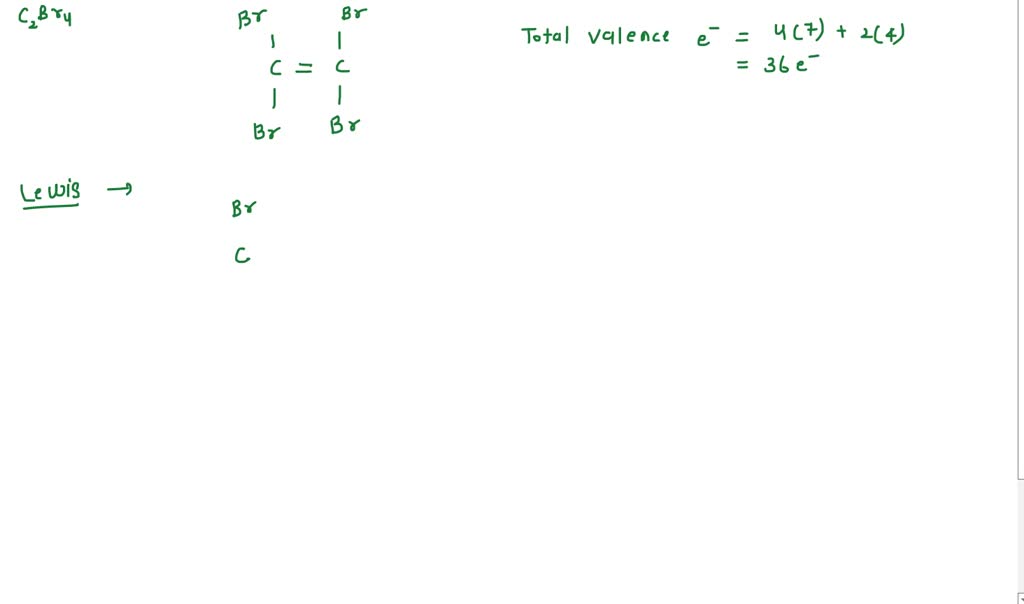 C₂Br₄
Br Br
| |
C = C
| |
Br Br
Total valence e⁻ = 4(7) + 2(4)
= 36 e⁻
Lewis →
Br
C